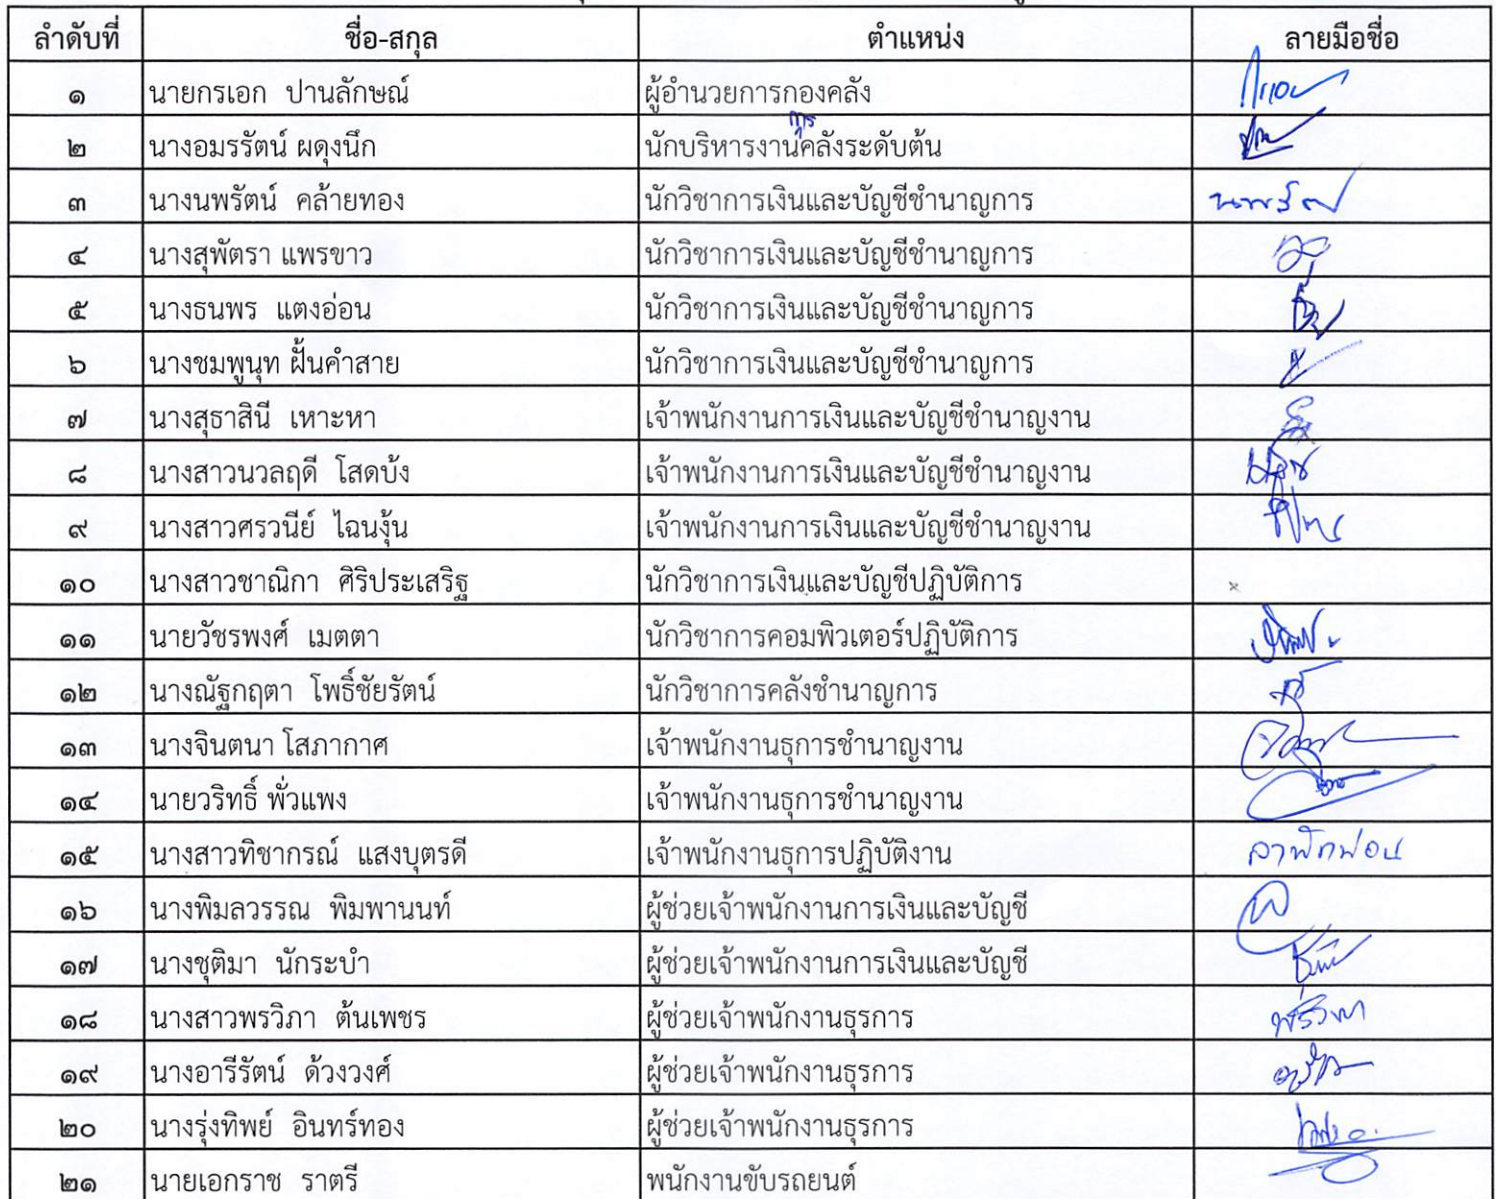 ลำดับที่ ชื่อ-สกุล ตำแหน่ง ลายมือชื่อ
๑ นายกรเอก ปานลักษณ์ ผู้อำนวยการกองคลัง
๒ นางอมรรัตน์ ผดุงนึก นักบริหารงานการคลังระดับต้น
๓ นางนพรัตน์ คล้ายทอง นักวิชาการเงินและบัญชีชำนาญการ นพรัตน์
๔ นางสุพัตรา แพรขาว นักวิชาการเงินและบัญชีชำนาญการ
๕ นางธนพร แตงอ่อน นักวิชาการเงินและบัญชีชำนาญการ
๖ นางชมพูนุท ฝั้นคำสาย นักวิชาการเงินและบัญชีชำนาญการ
๗ นางสุธาสินี เหาะหา เจ้าพนักงานการเงินและบัญชีชำนาญงาน
๘ นางสาวนวลฤดี โสดบ้ง เจ้าพนักงานการเงินและบัญชีชำนาญงาน
๙ นางสาวศรวนีย์ ไฉนงุ้น เจ้าพนักงานการเงินและบัญชีชำนาญงาน
๑๐ นางสาวชาณิกา ศิริประเสริฐ นักวิชาการเงินและบัญชีปฏิบัติการ ×
๑๑ นายวัชรพงศ์ เมตตา นักวิชาการคอมพิวเตอร์ปฏิบัติการ
๑๒ นางณัฐกฤตา โพธิ์ชัยรัตน์ นักวิชาการคลังชำนาญการ
๑๓ นางจินตนา โสภากาศ เจ้าพนักงานธุการชำนาญงาน
๑๔ นายวริทธิ์ พั่วแพง เจ้าพนักงานธุการชำนาญงาน
๑๕ นางสาวทิชากรณ์ แสงบุตรดี เจ้าพนักงานธุการปฏิบัติงาน ลาพักผ่อน
๑๖ นางพิมลวรรณ พิมพานนท์ ผู้ช่วยเจ้าพนักงานการเงินและบัญชี
๑๗ นางชุติมา นักระบำ ผู้ช่วยเจ้าพนักงานการเงินและบัญชี
๑๘ นางสาวพรวิภา ต้นเพชร ผู้ช่วยเจ้าพนักงานธุรการ พรวิภา
๑๙ นางอารีรัตน์ ด้วงวงศ์ ผู้ช่วยเจ้าพนักงานธุรการ
๒๐ นางรุ่งทิพย์ อินทร์ทอง ผู้ช่วยเจ้าพนักงานธุรการ
๒๑ นายเอกราช ราตรี พนักงานขับรถยนต์